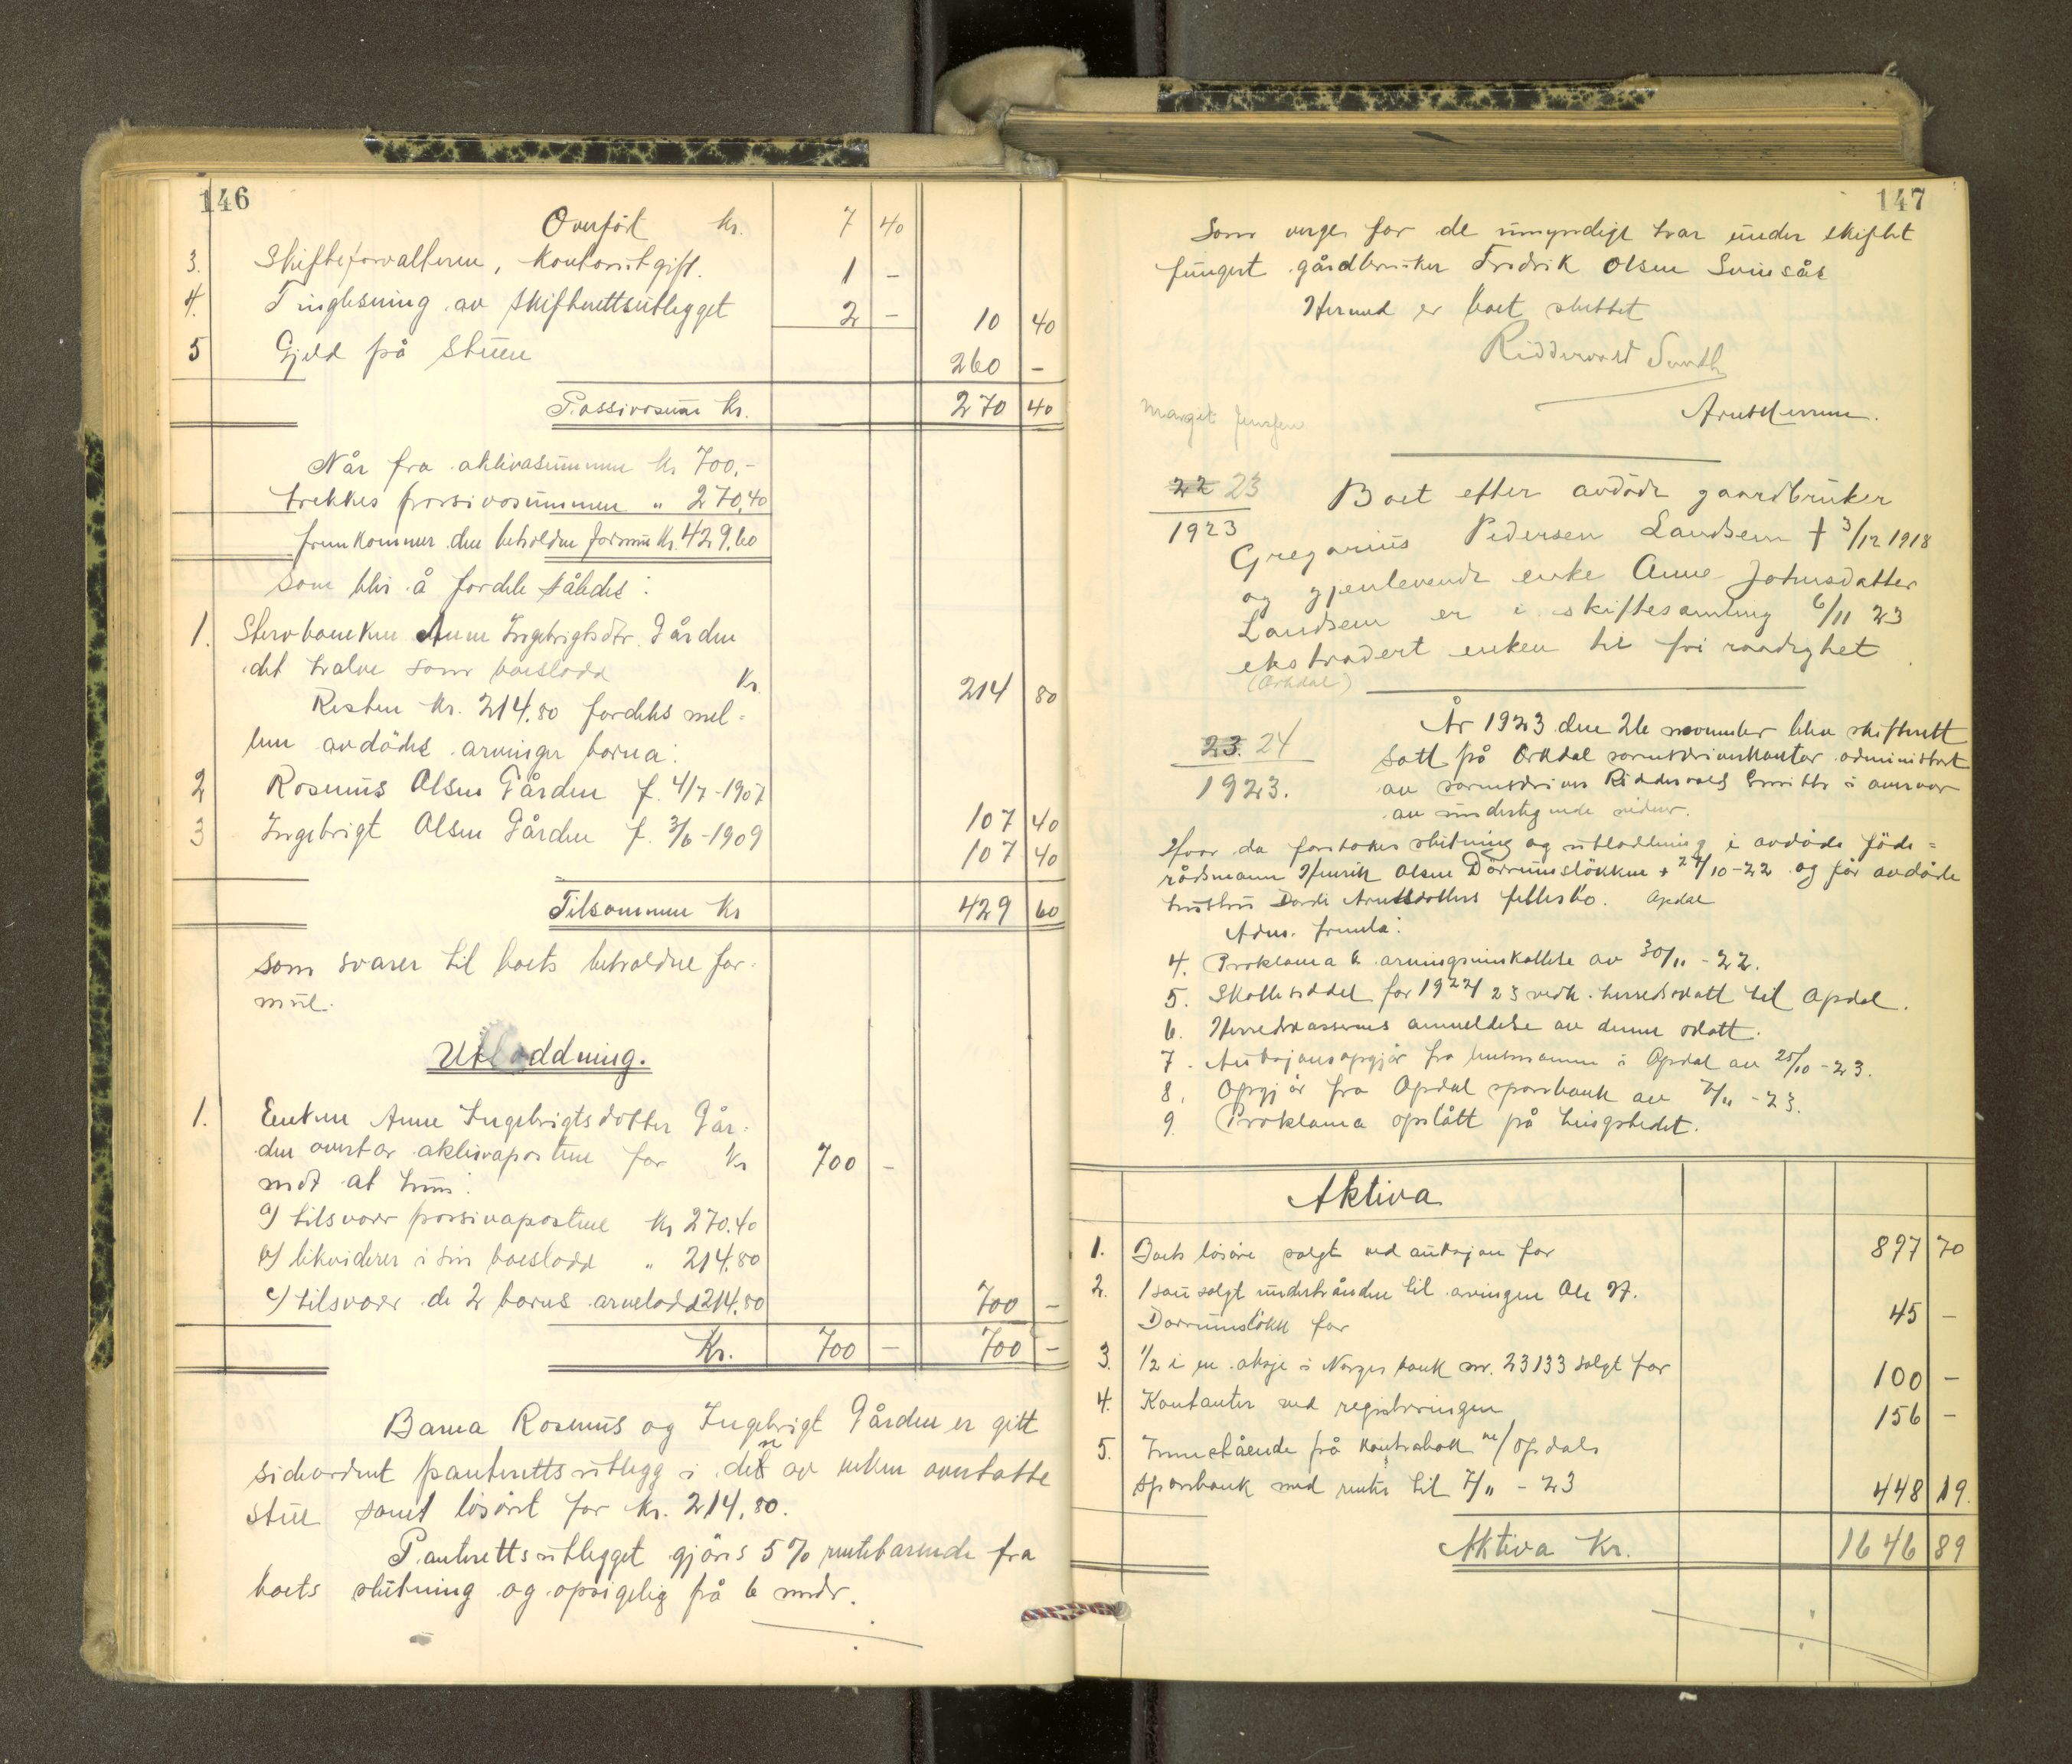 146
Overført kr. 7 40
3. Skifteforvalteren, kontorutgift. 1 -
4. Tinglesning av skifterettsutlegget 2 - 10 40
5 Gjeld på stuen 260 -
Passivasum kr. 270 40
Når fra aktivasummen kr 700.-
trekkes passivasummen " 270,40
fremkommer den beholdne formue kr. 429,60
som blir å fordele således:
1. Stervboenken Anne Ingebrigtsdtr. Gården
det halve som boeslodd kr. 214 80
Resten kr. 214.80 fordeles mel=
lem avdødes arvinger barna:
2 Rosenus Olsen Gården f. 4/7-1907 107 40
3 Ingebrigt Olsen Gården f. 3/6-1909 107 40
Tilsammen kr 429 60
som svarer til boets beholdne for-
mue.
Utloddning.
1. Enken Anne Ingebrigtsdotter Går-
den overtar aktivapostene for kr 700 -
mot at hun:
a) tilsvarer passivapostene kr 270.40
b) likviderer i sin boeslodd " 214.80
c) tilsvarer de 2 barns arvelodd 214.80 700 -
Kr. 700 - 700 -
Barna Rosenus og Ingebrigt Gården er gitt
sideordnet panterettsutlegg i den av enken overtatte
stue samt løsøret for kr. 214.80.
Panterettsutlegget gjøres 5% rentebærende fra
boets slutning og opsigelig på 6 mndr.
147
Som verge for de umyndige har under skiftet
fungert gårdbruker Fredrik Olsen Svinsås
Hermed er boet sluttet
Riddervold Smith
Marget Jensen
22 23
1923
Boet efter avdøde gaardbruker
Gregorius Pedersen Landsem † 3/12 1918
og gjenlevende enke Anne Johnsdatter
Landsem er i skiftesamling 6/11 23
ekstradert enken til fri raadighet
(Orkdal)
23. 24
1923.
År 1923 den 26 november blev skifterett
satt på Orkdal sorenskriverkontor administrert
av sorenskriver Riddervold Smith i overvær
av undertegnede vidner.
Hvor da foretokes slutning og utloddning i avdøde føde=
rådsmann Henrik Olsen Dørrumsløkken + 24/10-22 og før avdøde
hustru Dordi Arntsdotters fellesbo. Opdal
Adm. fremla:
4. Proklama & arvingsinnkallelse av 30/11-22.
5. Skatteseddel for 1922/23 vedk. herredsskatt til Opdal.
6. Herredskasserens anmeldelse av denne skatt.
7. Auksjonsopgjør fra lensmannen i Opdal av 25/10-23.
8. Opgjør fra Opdal sparebank av 7/11-23.
9. Proklama opslått på tingstedet.
Aktiva
1. Boets løsøre solgt ved auksjon for 897 70
2. 1 sau solgt underhånden til arvingen Ole H.
Dørrumsløkk for 45 -
3. 1/2 i en aksje i Norges bank nr. 23133 solgt for 100 -
4. Kontanter ved registreringen 156 -
5. Innestående på kontrabok m/ Opdals
sparebank med renter til 7/11-23 448 19.
Aktiva Kr. 1646 89